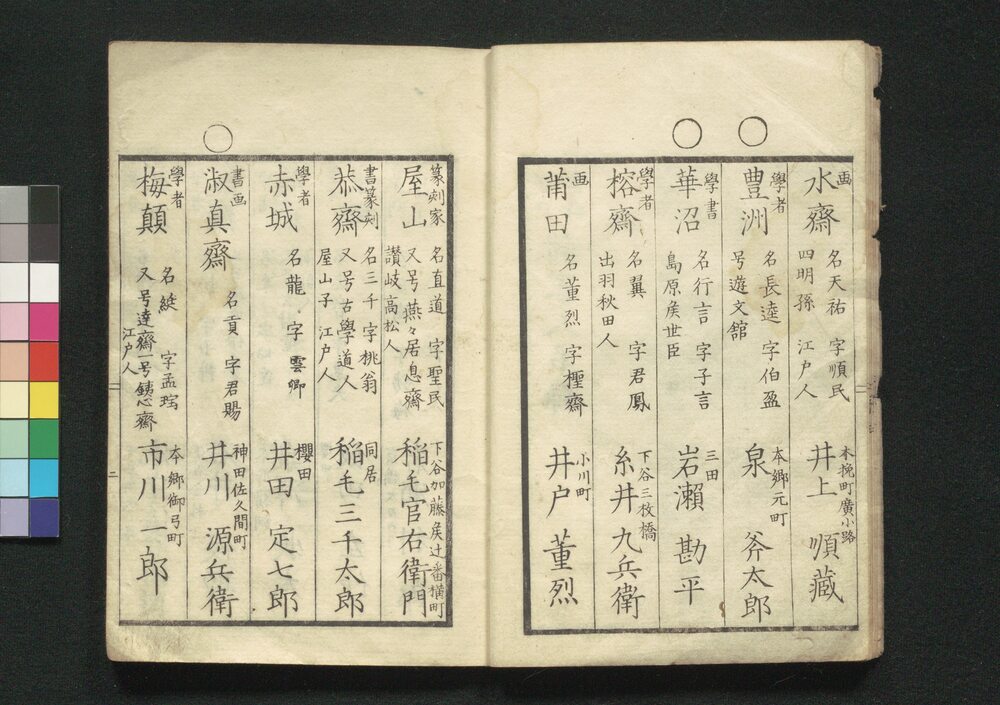 画
水齋
名天祐 字順民
四明孫 江戸人
木挽町廣小路
井上 順藏
學者
豊洲
名長達 字伯盈
号遊文館
本郷元町
泉 斧太郎
學書
華沼
名行言 字子言
島原矦世臣
三田
岩瀬 勘平
學者
榕齋
名翼 字君鳳
出羽秋田人
下谷三枚橋
糸井九兵衛
画
莆田
名董烈 字樫齋
小川町
井戸 董烈
篆刻家
屋山
名直道 字聖民
又号燕々居息齋
讃岐高松人
下谷加藤矦辻番横町
稲毛官右衛門
書篆刻
恭齋
名三千 字桃翁
又号古學道人
屋山子 江戸人
同居
稲毛三千太郎
學者
赤城
名龍 字雲卿
櫻田
井田 定七郎
書画
淑真齋
名貢 字君賜
神田佐久間町
井川 源兵衛
學者
梅顛
字孟瑤
又号達齋一号鉄心齋
江戸人
本郷御弓町
市川一郎
二